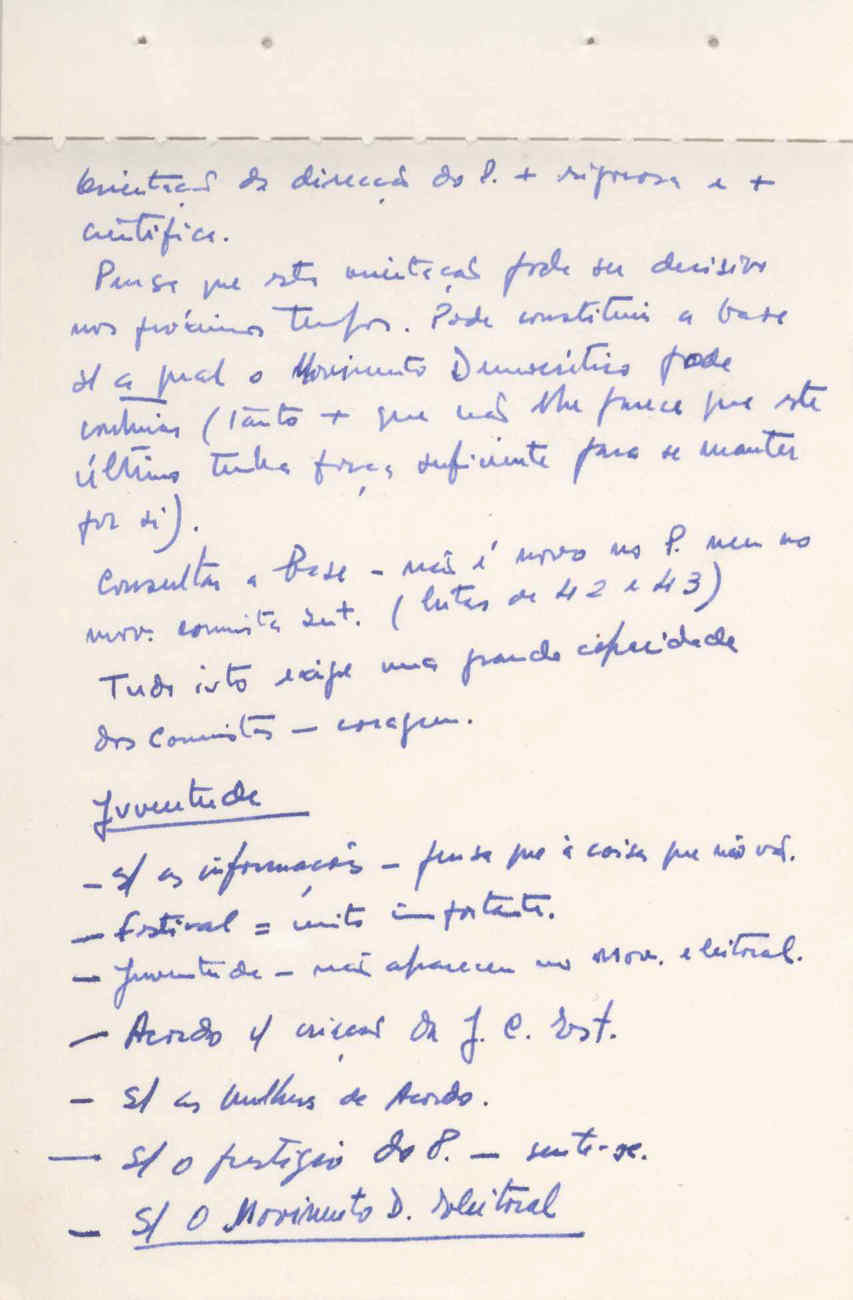 Orientação da direcção do P. + rigorosa e +
científica.
Pensa que esta orientação pode ser decisiva
nos próximos tempos. Pode constituir a base
s/ a qual o Movimento Democrático pode
continuar (tanto + que não lhe parece que este
último tenha força suficiente para se manter
por si).
Consultar a Base – não é novo no P. nem no
mov. comunista Int. (lutas de 42 e 43)
Tudo isto exige uma grande capacidade
dos Comunistas – coragem.
Juventude
– S/ as informações – pensa que é coisa que não vá.
– Festival = muito importante.
– Juventude – não apareceu no Mov. eleitoral.
– Acordo c/ criação da J. C. Est.
– S/ as mulheres de Acordo.
– S/ o prestígio do P. – sente-se.
– S/ O Movimento D. Eleitoral